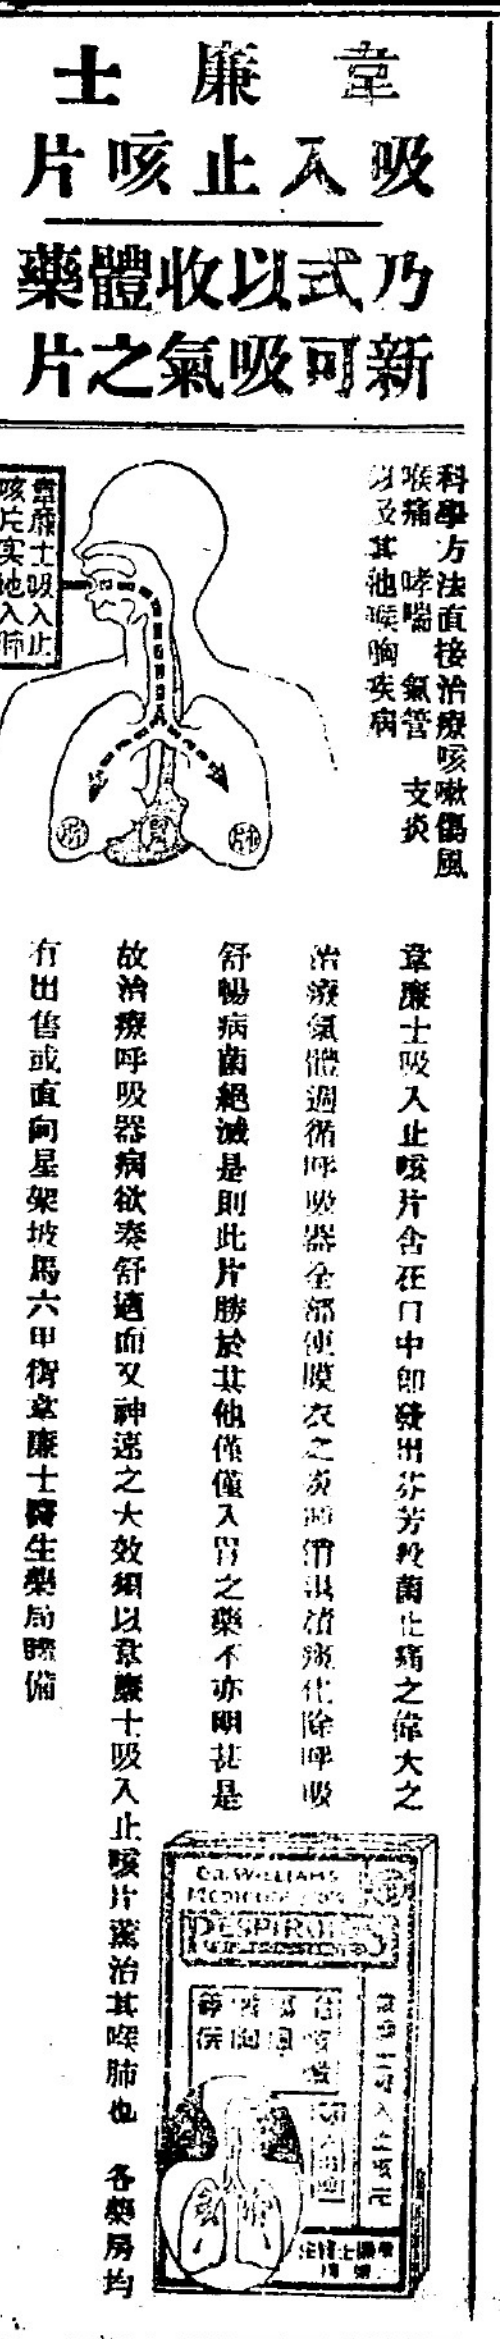 韋廉士
吸入止咳片
乃式以收體藥
新可吸氣之片
科學方法直接治療咳嗽傷風
喉痛 哮喘 氣管 支炎
以及其他喉胸疾病
韋廉士吸入止
咳片实地入肺
肺
肺
韋廉士吸入止咳片含在口中卽發出芬芳殺菌止痛之偉大之
治療氣體週循呼吸器全部使膜衣之炎卽消退積痰化除呼吸
舒暢病菌絕滅是則此片勝於其他僅僅入胃之藥不亦明甚是
故治療呼吸器病欲奏舒適而又神速之大效須以韋廉士吸入止咳片薰治其喉肺也 各藥房均
有出售或直向星架坡馬六甲街韋廉士醫生藥局購備
DR. WILLIAMS
MEDICINE CO.